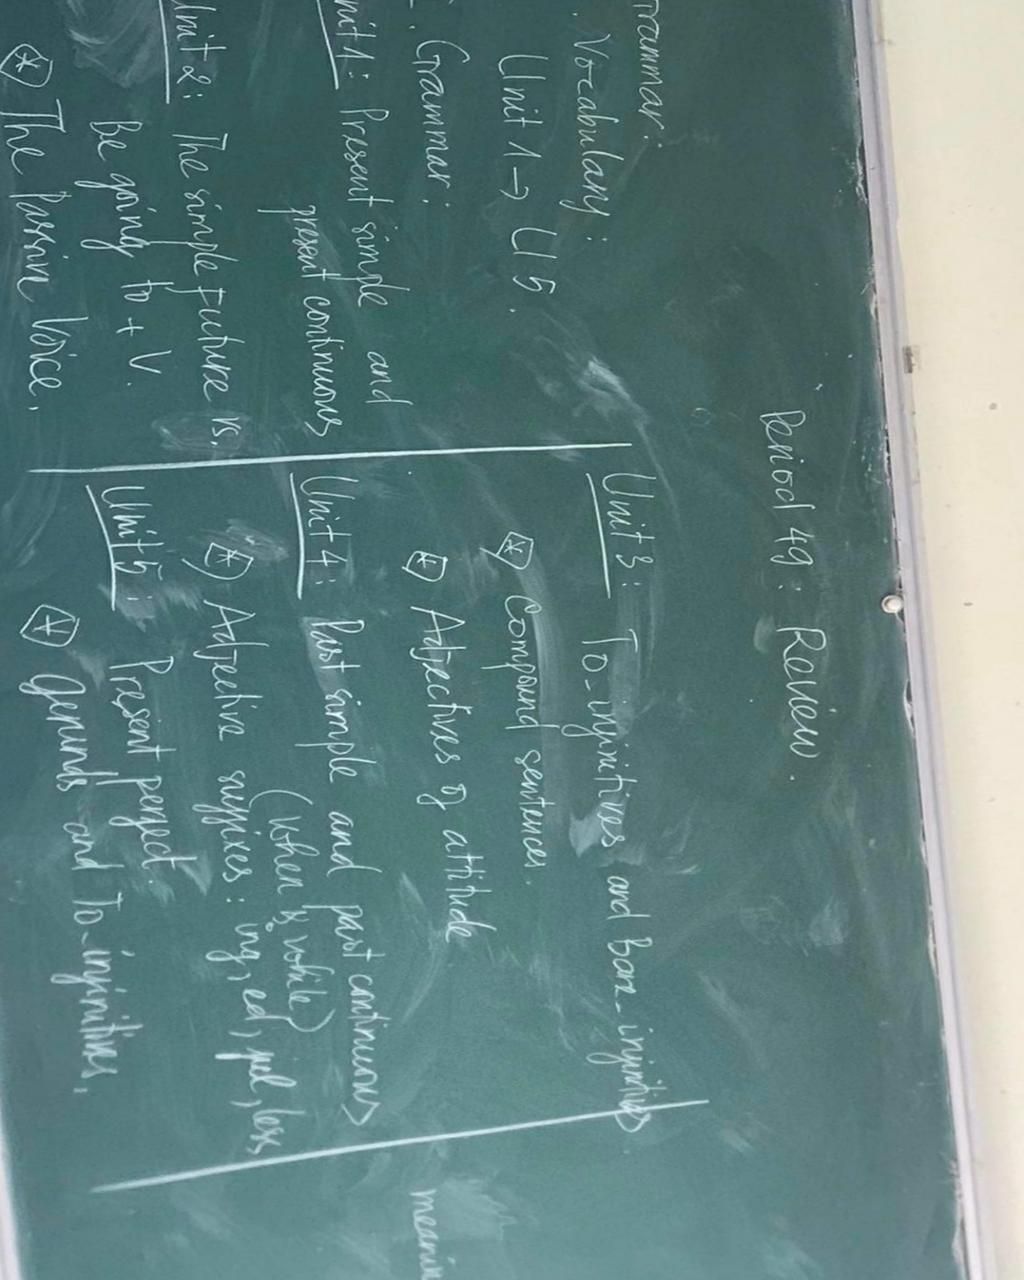 Period 49: Review.
Grammar:
Vocabulary:
Unit 1 → U 5.
Grammar:
Unit 1: Present simple and
present continuous
Unit 2: The simple future vs.
Be going to + V.
* The Passive Voice.
Unit 3: To_infinitives and Bare_infinitives
* Compound sentences.
* Adjectives of attitude
Unit 4: Past simple and past continuous
(When & while)
* Adjective suffixes: ing, ed, ful, less
Unit 5: Present perfect.
* Gerunds and To_infinitives.